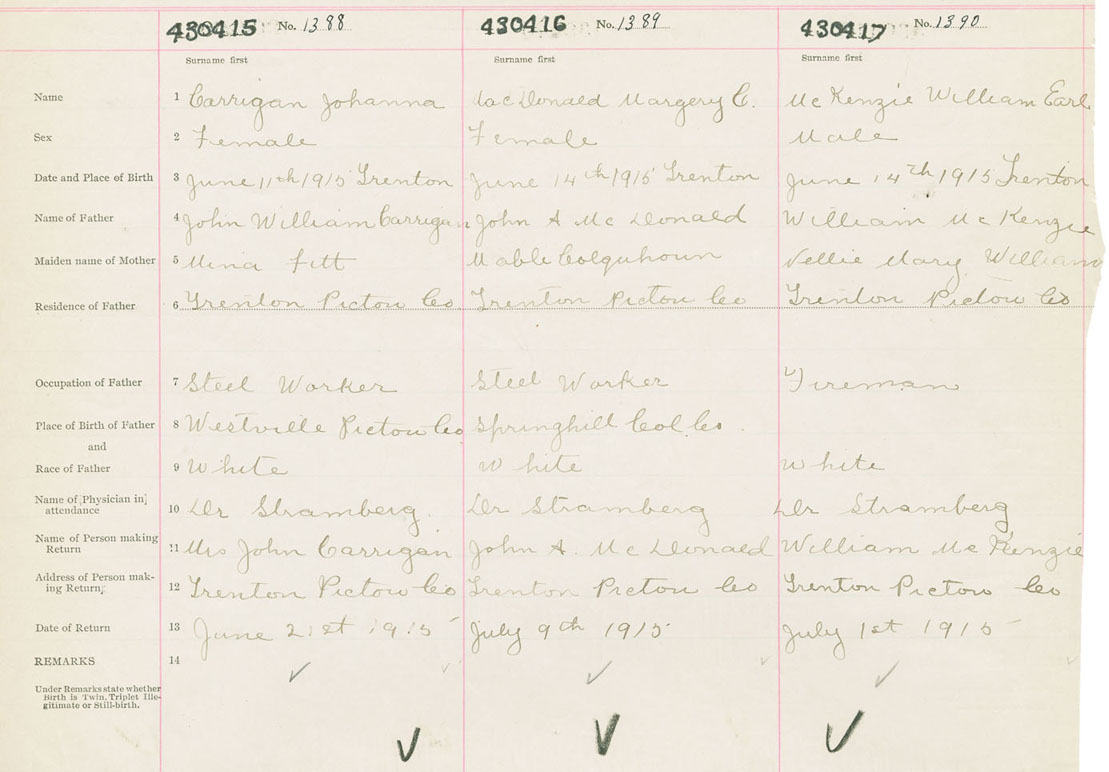 430415 No. 1388 430416 No. 1389 430417 No. 1390
Surname first Surname first Surname first
Name 1 Carrigan Johanna MacDonald Margery C. McKenzie William Earl
Sex 2 Female Female Male
Date and Place of Birth 3 June 11th 1915 Trenton June 14th 1915 Trenton June 14th 1915 Trenton
Name of Father 4 John William Carrigan John A McDonald William McKenzie
Maiden name of Mother 5 Mina Fitt Mable Colquhoun Nellie Mary William
Residence of Father 6 Trenton Pictou Co Trenton Pictou Co Trenton Pictou Co
Occupation of Father 7 Steel Worker Steel Worker Fireman
Place of Birth of Father 8 Westville Pictou Co Springhill Col Co.
and
Race of Father 9 White White White
Name of Physician in
attendance 10 Dr Stramberg Dr Stramberg Dr Stramberg
Name of Person making
Return 11 Mrs John Carrigan John A. McDonald William McKenzie
Address of Person mak-
ing Return 12 Trenton Pictou Co Trenton Pictou Co Trenton Pictou Co
Date of Return 13 June 21st 1915 July 9th 1915 July 1st 1915
REMARKS 14
Under Remarks state whether
Birth is Twin, Triplet Ille-
gitimate or Still-birth.